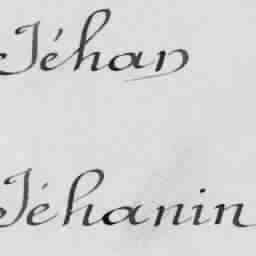 Jéhan
Jéhanin